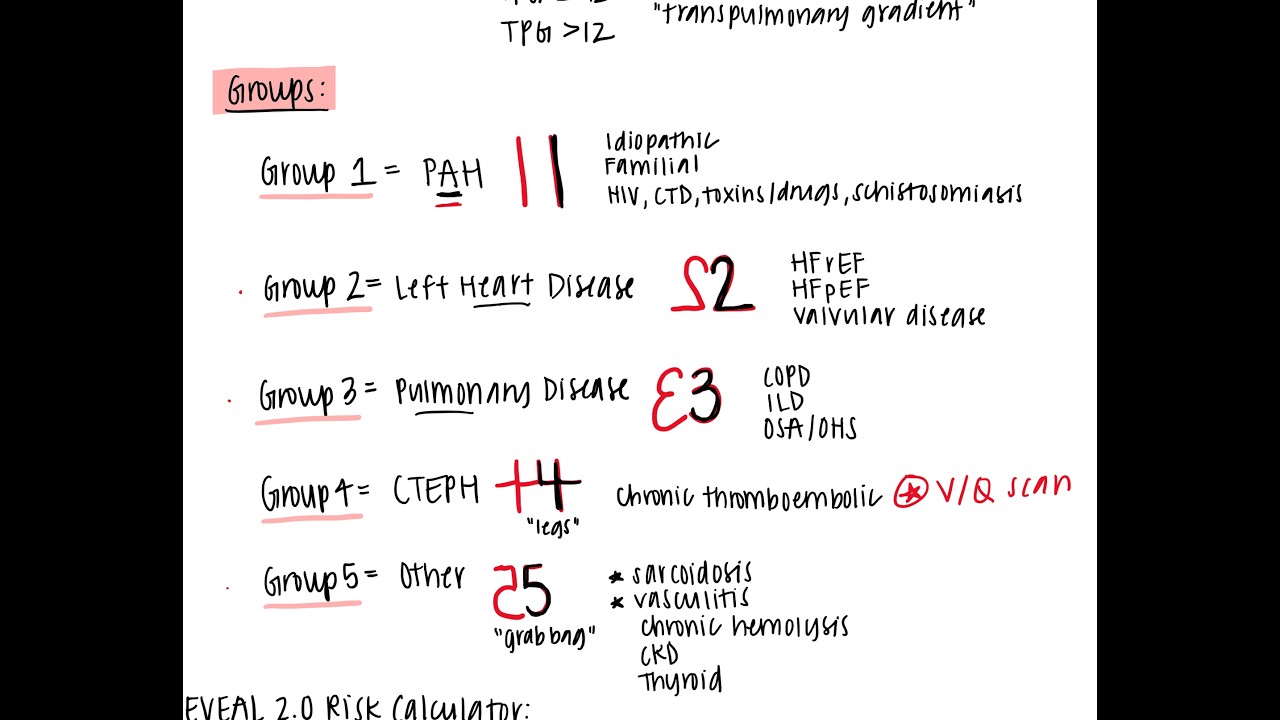 TPG >12
"transpulmonary gradient"
Groups:
Group 1 = PAH
Idiopathic
Familial
HIV, CTD, toxins/drugs, schistosomiasis
Group 2 = Left Heart Disease 2
HFrEF
HFpEF
valvular disease
Group 3 = Pulmonary Disease 3
COPD
ILD
OSA/OHS
Group 4 = CTEPH 4
"legs"
chronic thromboembolic * V/Q scan
Group 5 = Other 5
"grab bag"
* sarcoidosis
* vasculitis
chronic hemolysis
CKD
Thyroid
EVEAL 2.0 Risk Calculator: